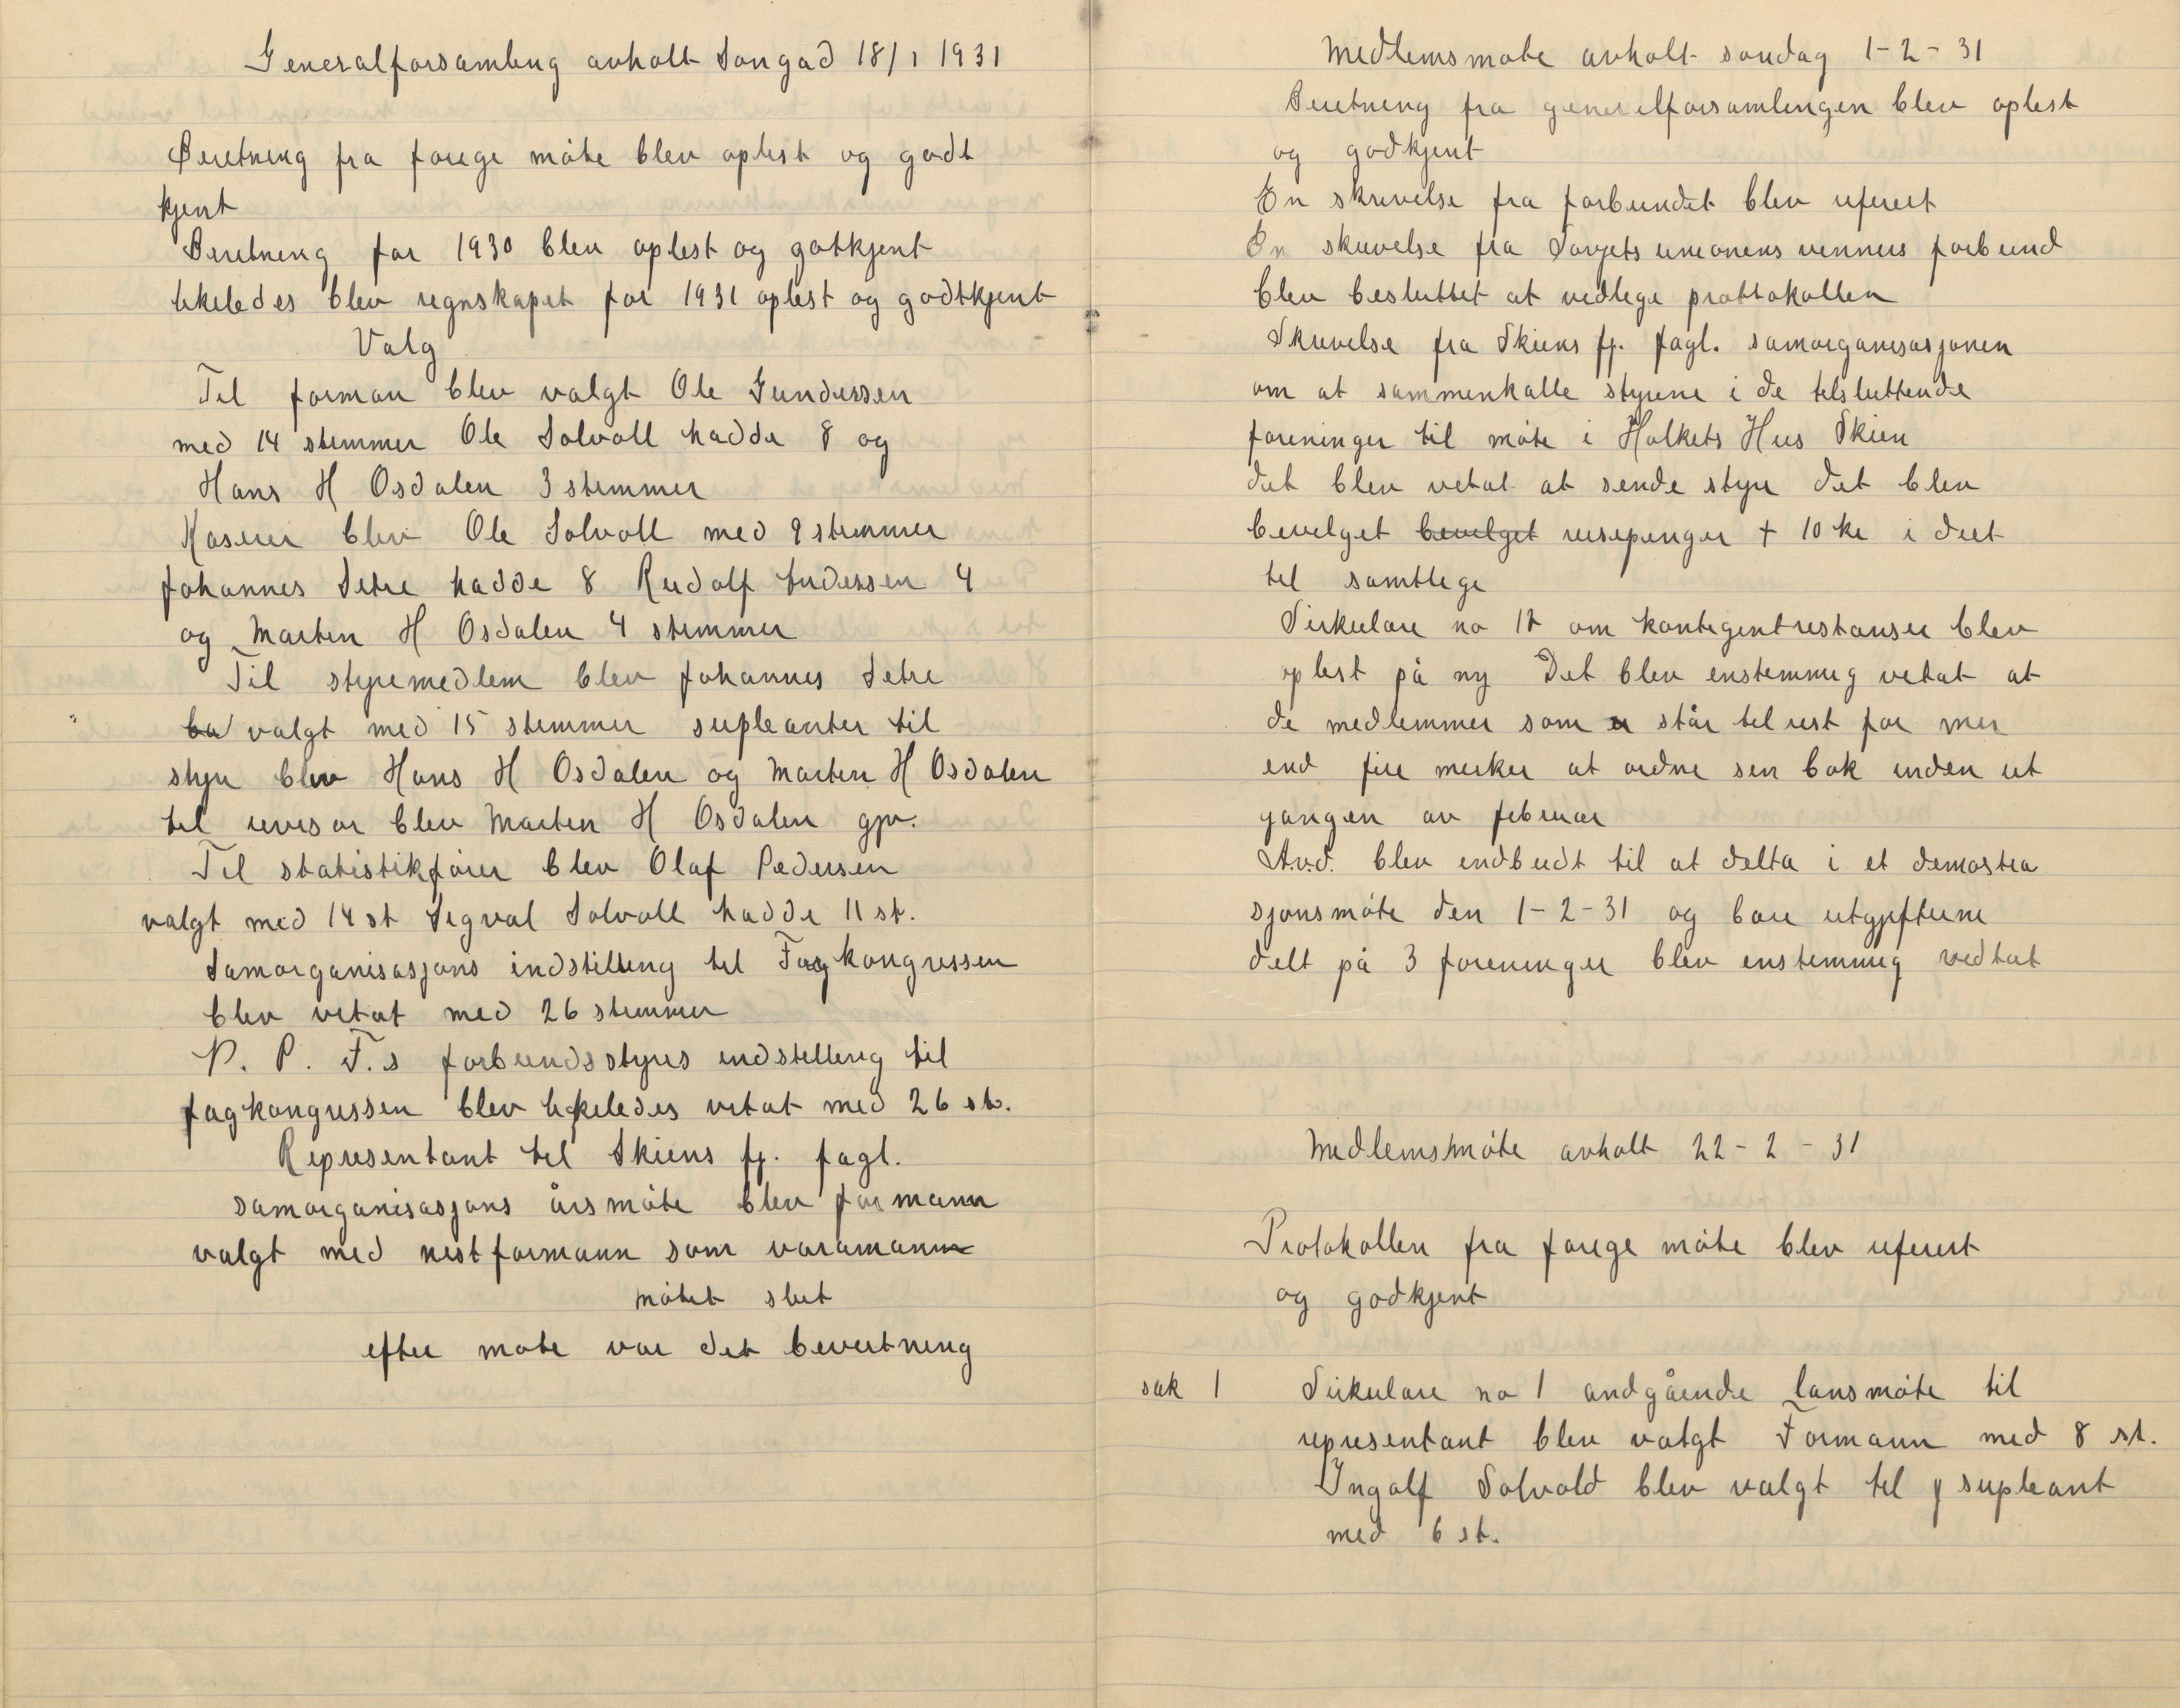 Generalforsamling avholt Songad 18/1 1931
Beretning fra forige måte blev oplest og godt
kjent
Beretning for 1930 blev oplest og gotkjent
likeledes blev regnskapet for 1931 oplest og godtkjent
Valg
Til forman blev valgt Ole Gundersen
med 14 stemmer Ole Solvoll hadde 8 og
Hans H Osdalen 3 stemmer
Kaserer blev Ole Solvoll med 9 stemmer
Johannes Setre hadde 8 Rudolf Andersen 4
og Martin H Osdalen 4 stemmer
Til styremedlem blev Johannes Setre
valgt med 15 stemmer supleanter til
styre blev Hans H Osdalen og Martin H Osdalen
til revisor blev Martin H Osdalen gjv.
Til statistikfører blev Olaf Pedersen
valgt med 14 st Sigval Solvoll hadde 11 st.
Samorganisasjons indstilling til Fagkongressen
blev vetat med 26 stemmer
N. P. F.s forbundsstyres indstilling til
fagkongressen blev likeledes vetat med 26 st.
Representant til Skiens fj. fagl.
samorganisasjons årsmøte blev formann
valgt med nestformann som varamann
møtet slut
efter møte var det bevertning
Medlemsmøte avholt søndag 1-2-31
Beretning fra generalforsamlingen blev oplest
og godkjent
En skrivelse fra forbundet blev referert
En skrivelse fra Sovjets unionens venners forbund
blev besluttet at vedlege prottokollen
Skrivelse fra Skiens fj. fagl. samorganisasjonen
om at sammenkalle styrene i de tilsluttende
foreninger til møte i Folkets Hus Skien
det blev vetat at sende styre det blev
bevilget bevilget reisepenger + 10 kr i diet
til samtlige
Sirkulære no 18 om kontigentrestanser blev
oplest på ny Det blev enstemmig vetat at
de medlemmer som står til rest for mer
end fire merker at ordne sin bok inden ut
gangen av februar
Avd. blev indbudt til at delta i et demostra
sjonsmøte den 1-2-31 og bære utgifterne
delt på 3 foreninger blev enstemmig vedtat
Medlemsmøte avholt 22-2-31
Protokollen fra forige møte blev referert
og godkjent
sak 1 Sirkulære no 1 andgående lansmøte til
representant blev valgt Formann med 8 st.
Ingolf Solvold blev valgt til supleant
med 6 st.